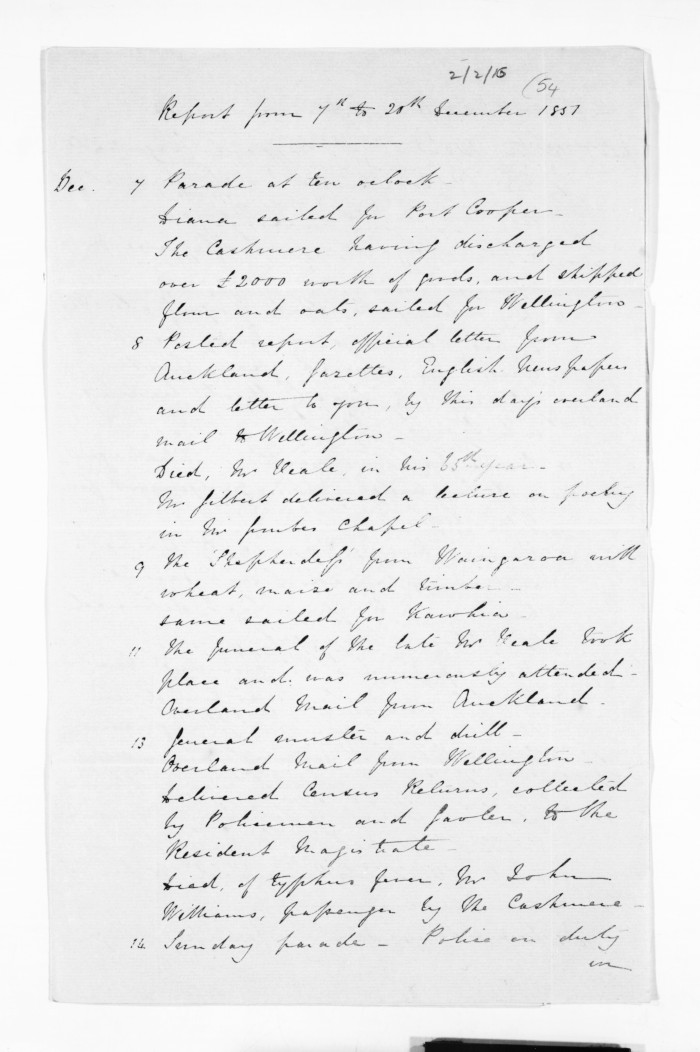 2/2/15 (54
Report from 7th to 20th December 1851
Dec. 7 Parade at ten oclock -
Diana sailed for Port Cooper -
The Cashmere having discharged
over £2000 worth of goods, and shipped
flour and oats, sailed for Wellington -
8 Posted report, official letter from
Auckland, Gazettes, English Newspapers
and letter to you, by this day's overland
mail to Wellington -
Died, Mr Veale, in his 65th year -
Mr Gilbert delivered a lecture on poetry
in Mr Chapel -
9 The Shepherdess from Waingaroa with
wheat, maize and timber -
same sailed for Kawhia -
11 The funeral of the late Mr Veale took
place and was numerously attended -
Overland Mail from Auckland.
13 General muster and drill -
Overland Mail from Wellington -
Delivered Census Returns, collected
by Policemen and Gaoler, to the
Resident Magistrate -
Died, of typhus fever, Mr John
Williams, passenger by the Cashmere -
14. Sunday parade - Police on duty
in